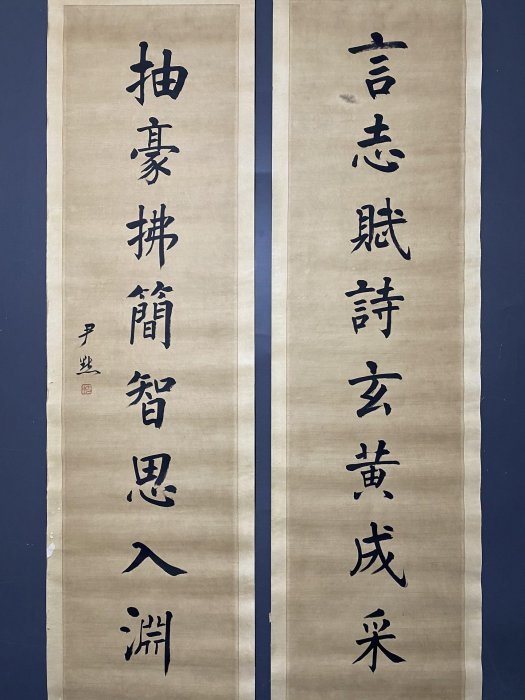 言志賦詩玄黃成采
抽豪拂簡智思入淵
尹默